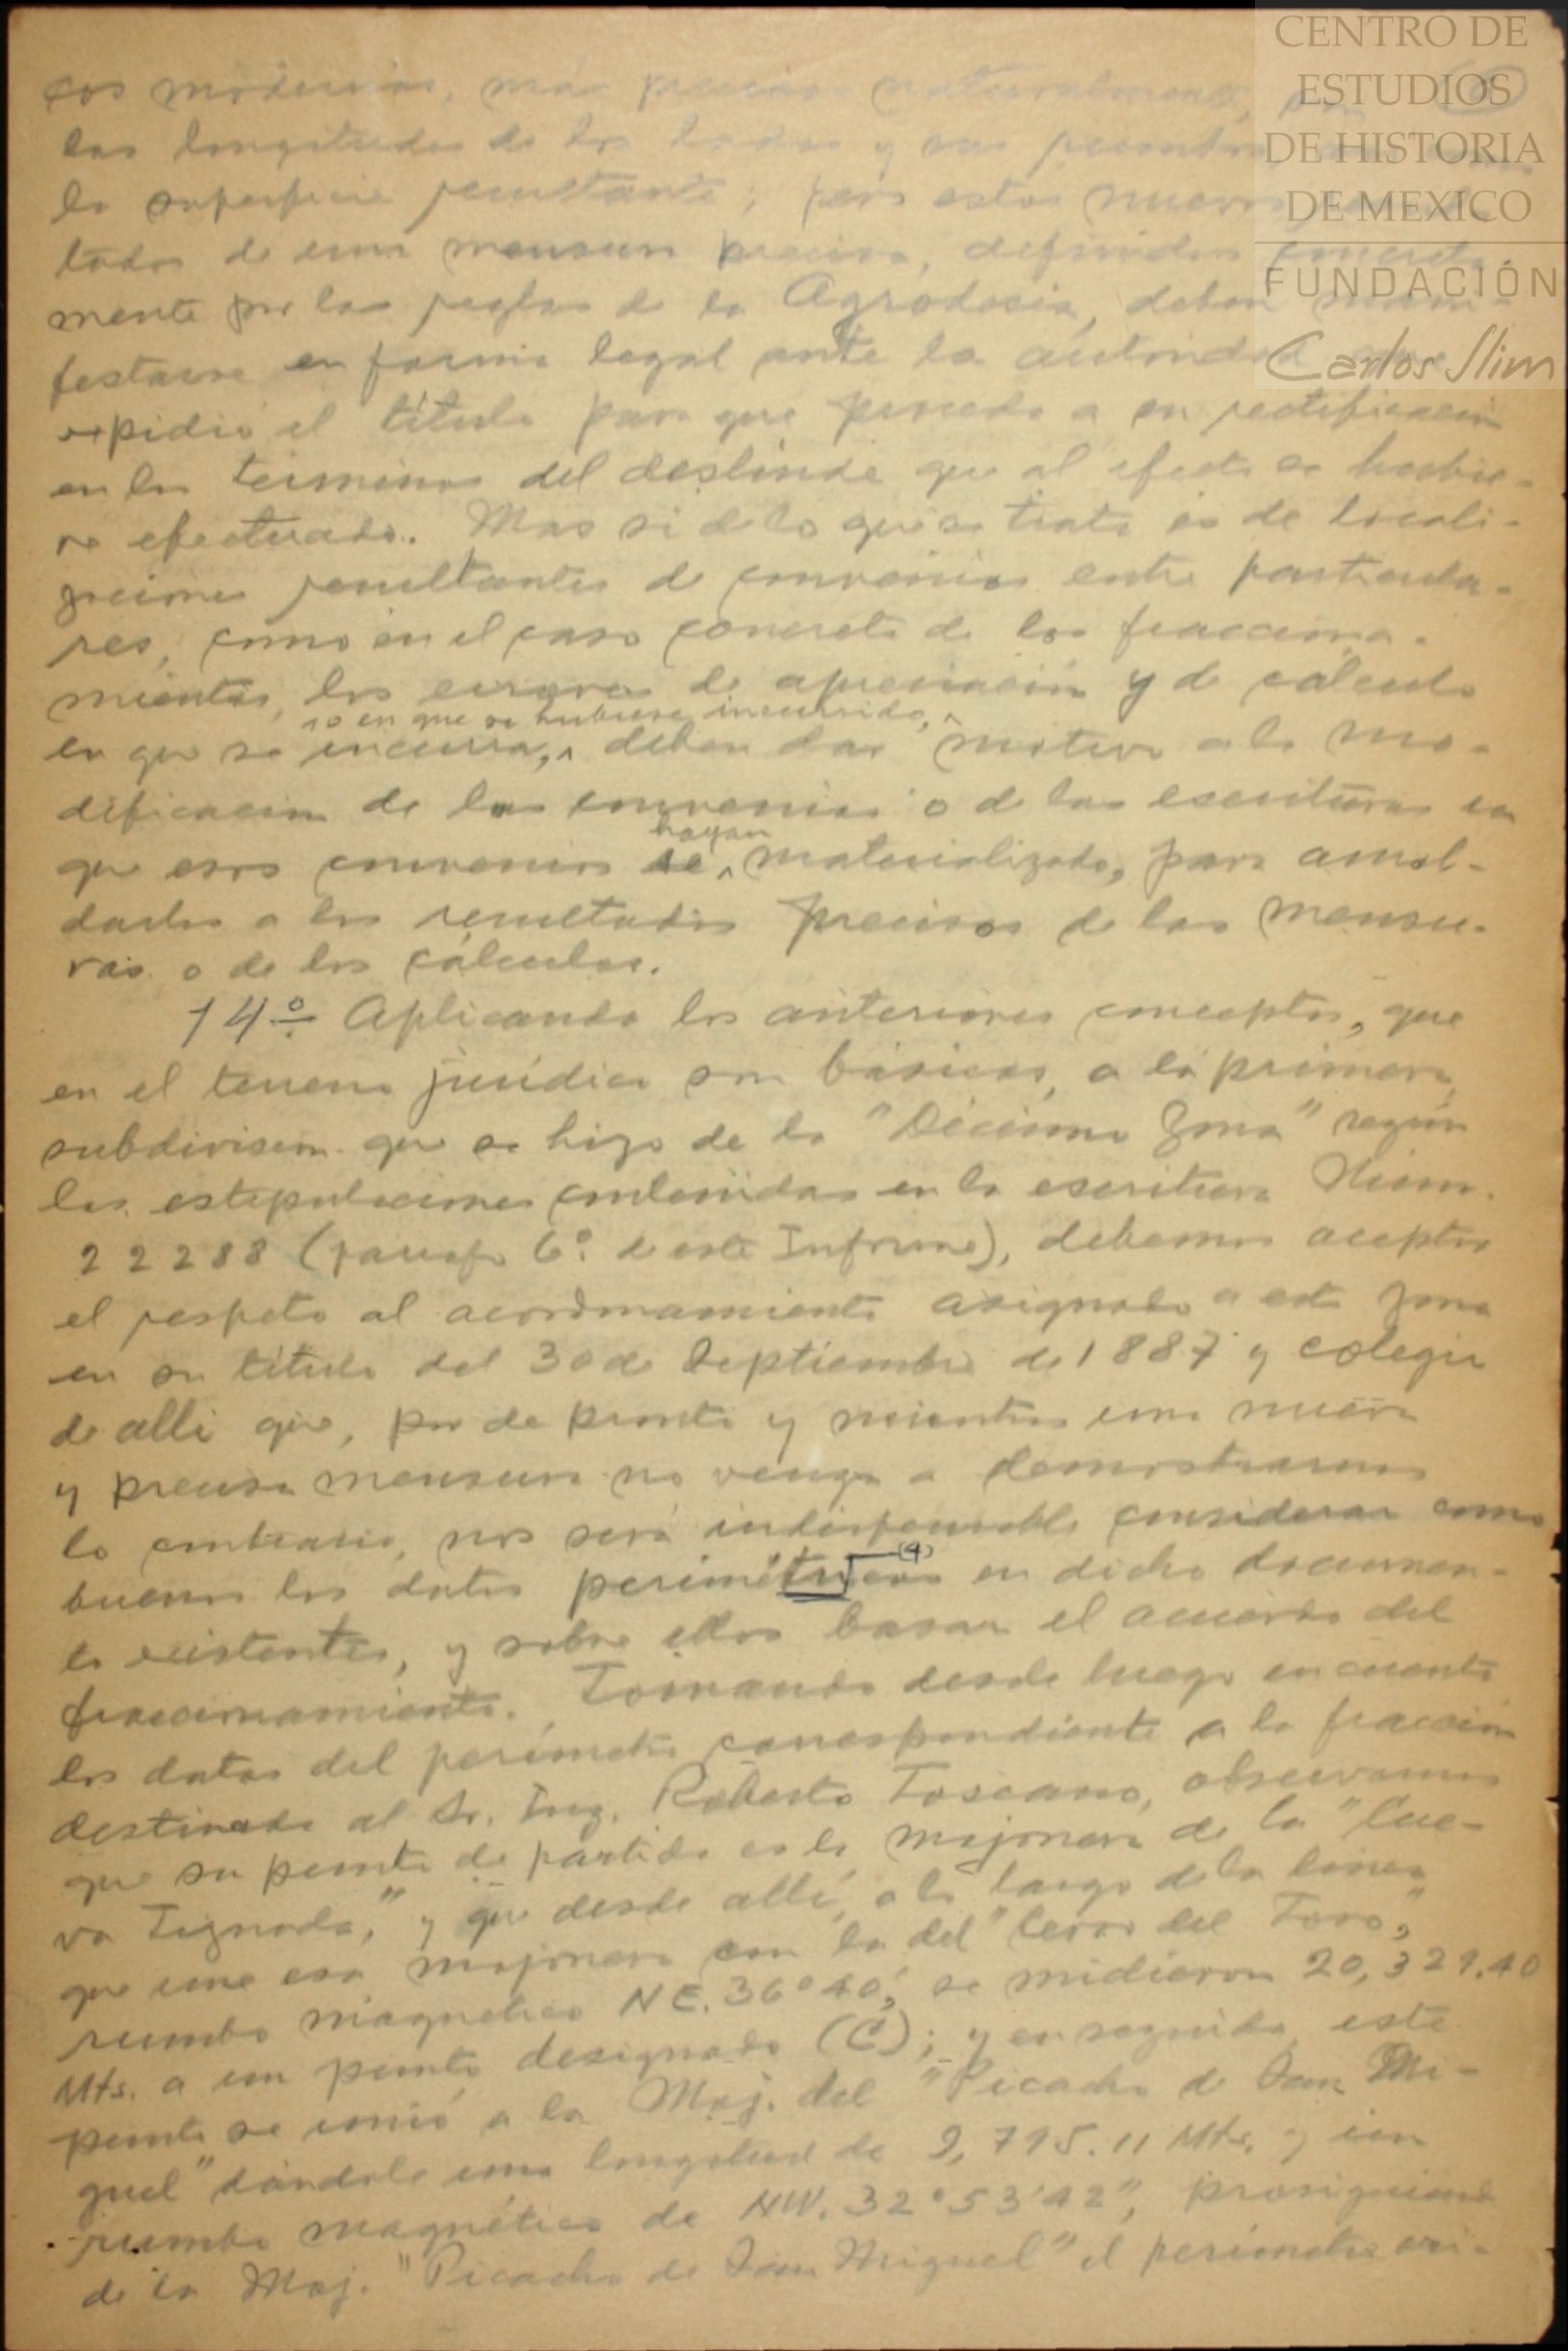 cos modernos, más precisos naturalmente,
las longitudes de los lados y sus rumbos
la superficie resultante; pero estos nuevos
tados de una mensura precisa, definidos concreta-
mente por las reglas de la Agrodesia, deben mani-
festarse en forma legal ante la autoridad que
expidió el título para que proceda a su rectificación
en los términos del deslinde que al efecto se hubie-
re efectuado. Mas si de lo que se trata es de locali-
zaciones resultantes de convenios entre particula-
res, como en el caso concreto de los fracciona-
mientos, los errores de apreciación y de cálculo
o en que se hubiese incurrido,
en que se incurra, deben dar motivo a la mo-
dificación de los convenios o de las escrituras en
hayan
que esos convenios se materializado, para amol-
darlos a los resultados precisos de las mensu-
ras o de los cálculos.
14º Aplicando los anteriores conceptos, que
en el terreno jurídico son básicos, a la primera
subdivisión que se hizo de la "Décima Zona" según
las estipulaciones contenidas en la escritura Núm.
22288 (párrafo 6º. de este Informe), debemos aceptar
el respeto al acordonamiento asignado a esta zona
en su título del 30 de Septiembre de 1887 y colegir
de allí que, por de pronto y mientras una nueva
y precisa mensura no venga a demostrarnos
lo contrario, nos será indispensable considerar como
(4)
buenos los datos perimétricos en dicho documen-
to existentes, y sobre ellos basar el acuerdo del
fraccionamiento. Tomando desde luego en cuenta
los datos del perímetro correspondiente a la fracción
destinada al Sr. Ing. Roberto Toscano, observamos
que su punto de partida es la mojonera de la "Cue-
va Tiznada," y que desde allí, a lo largo de la línea
que une esa mojonera con la del "Cerro del Toro,"
rumbo magnético NE. 36°40', se midieron 20,329.40
Mts. a un punto designado (C); y en seguida este
punto se unió a la Moj. del "Picacho de San Mi-
guel" dándole una longitud de 9,795.11 Mts. y un
rumbo magnético de NW. 32°53'42", prosiguiendo
de la Moj. "Picacho de San Miguel" el perímetro ori-
CENTRO DE
ESTUDIOS
DE HISTORIA
DE MEXICO
FUNDACIÓN
Carlos Slim